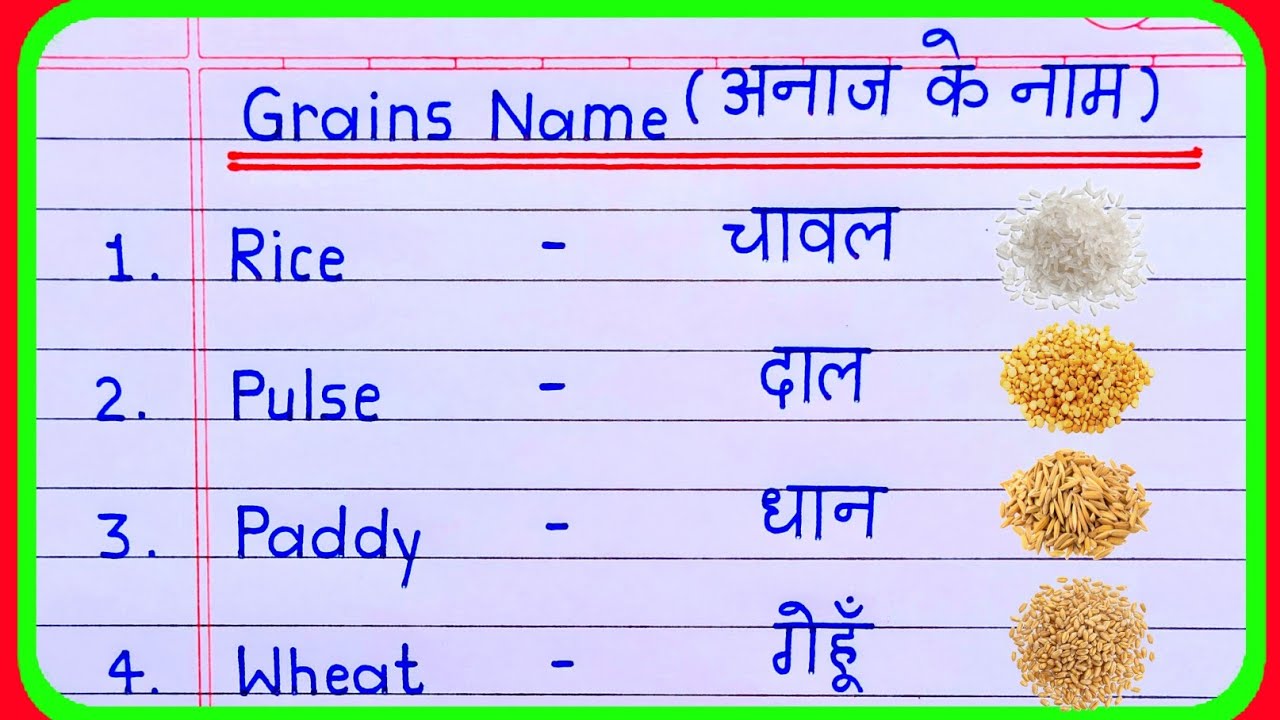 Grains Name (अनाज के नाम)
1. Rice - चावल
2. Pulse - दाल
3. Paddy - धान
4. Wheat - गेहूँ